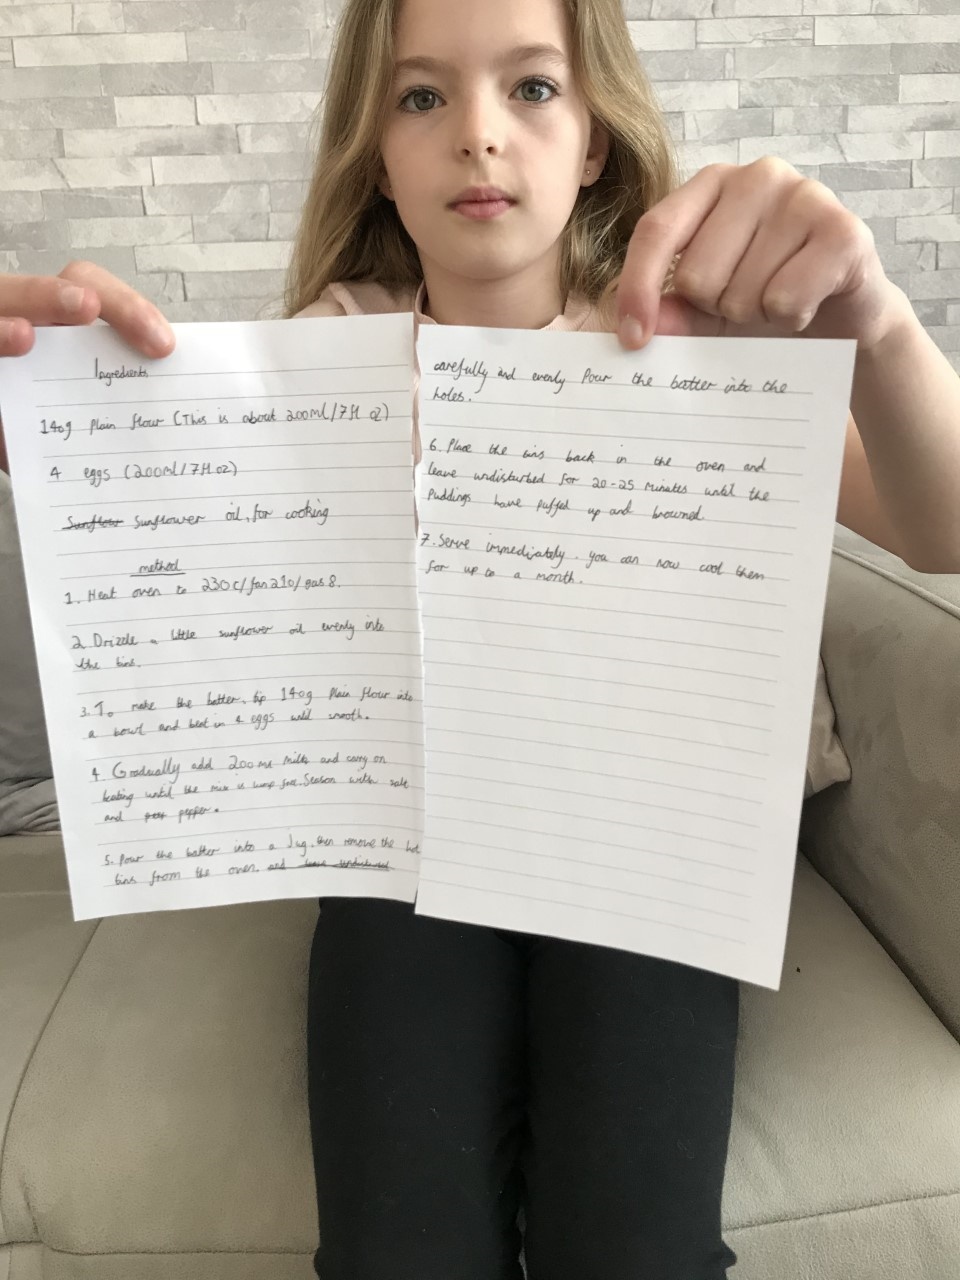 Ingredients
140g plain flour (This is about 200ml/7fl oz)
4 eggs (200ml/7fl oz)
Sunflow Sunflower oil, for cooking
method
1. Heat oven to 230c/fan210/gas 8.
2. Drizzle a little sunflower oil evenly into
the tins.
3. To make the batter, tip 140g plain flour into
a bowl and beat in 4 eggs until smooth.
4. Gradually add 200ml milk and carry on
beating until the mix is lump free. Season with salt
and pepper.
5. Pour the batter into a Jug, then remove the hot
tins from the oven. and leave undisturbed
carefully and evenly Pour the batter into the
holes.
6. Place the tins back in the oven and
leave undisturbed for 20-25 minutes until the
Puddings have puffed up and browned.
7. Serve immediately. you can now cool them
for up to a month.